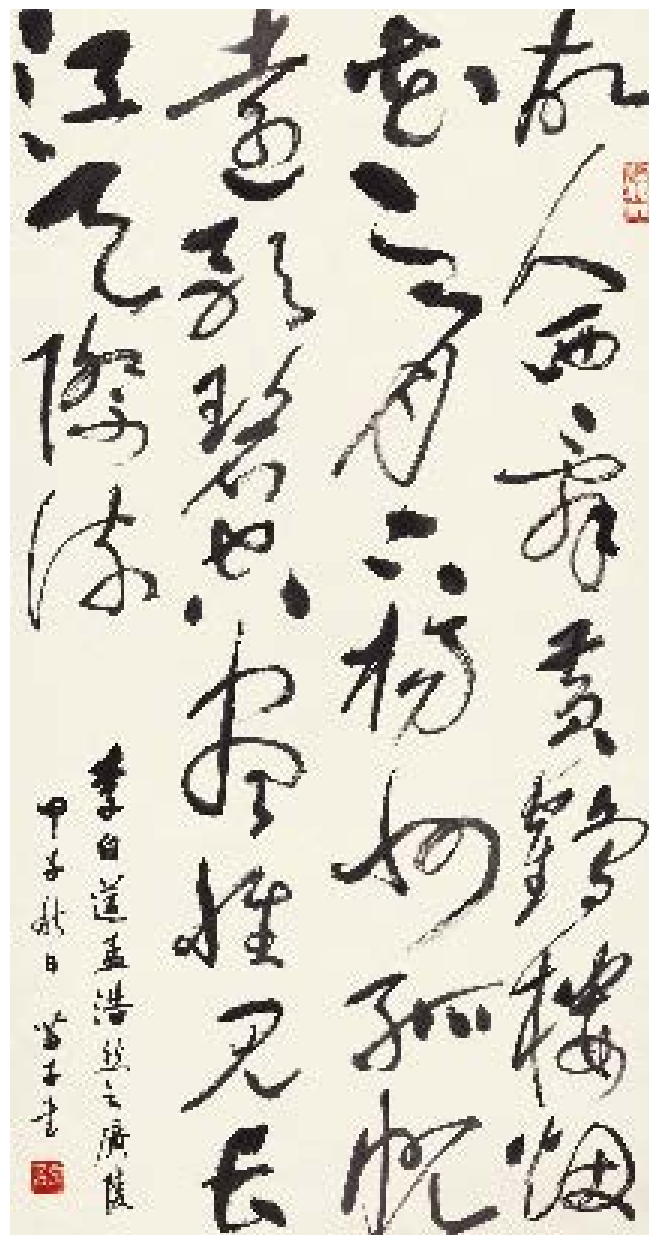 故人西辭黄鶴樓烟
花三月下揚州孤帆
遠影碧空盡惟見長
江天際流
李白送孟浩然之廣陵
甲子秋日 書